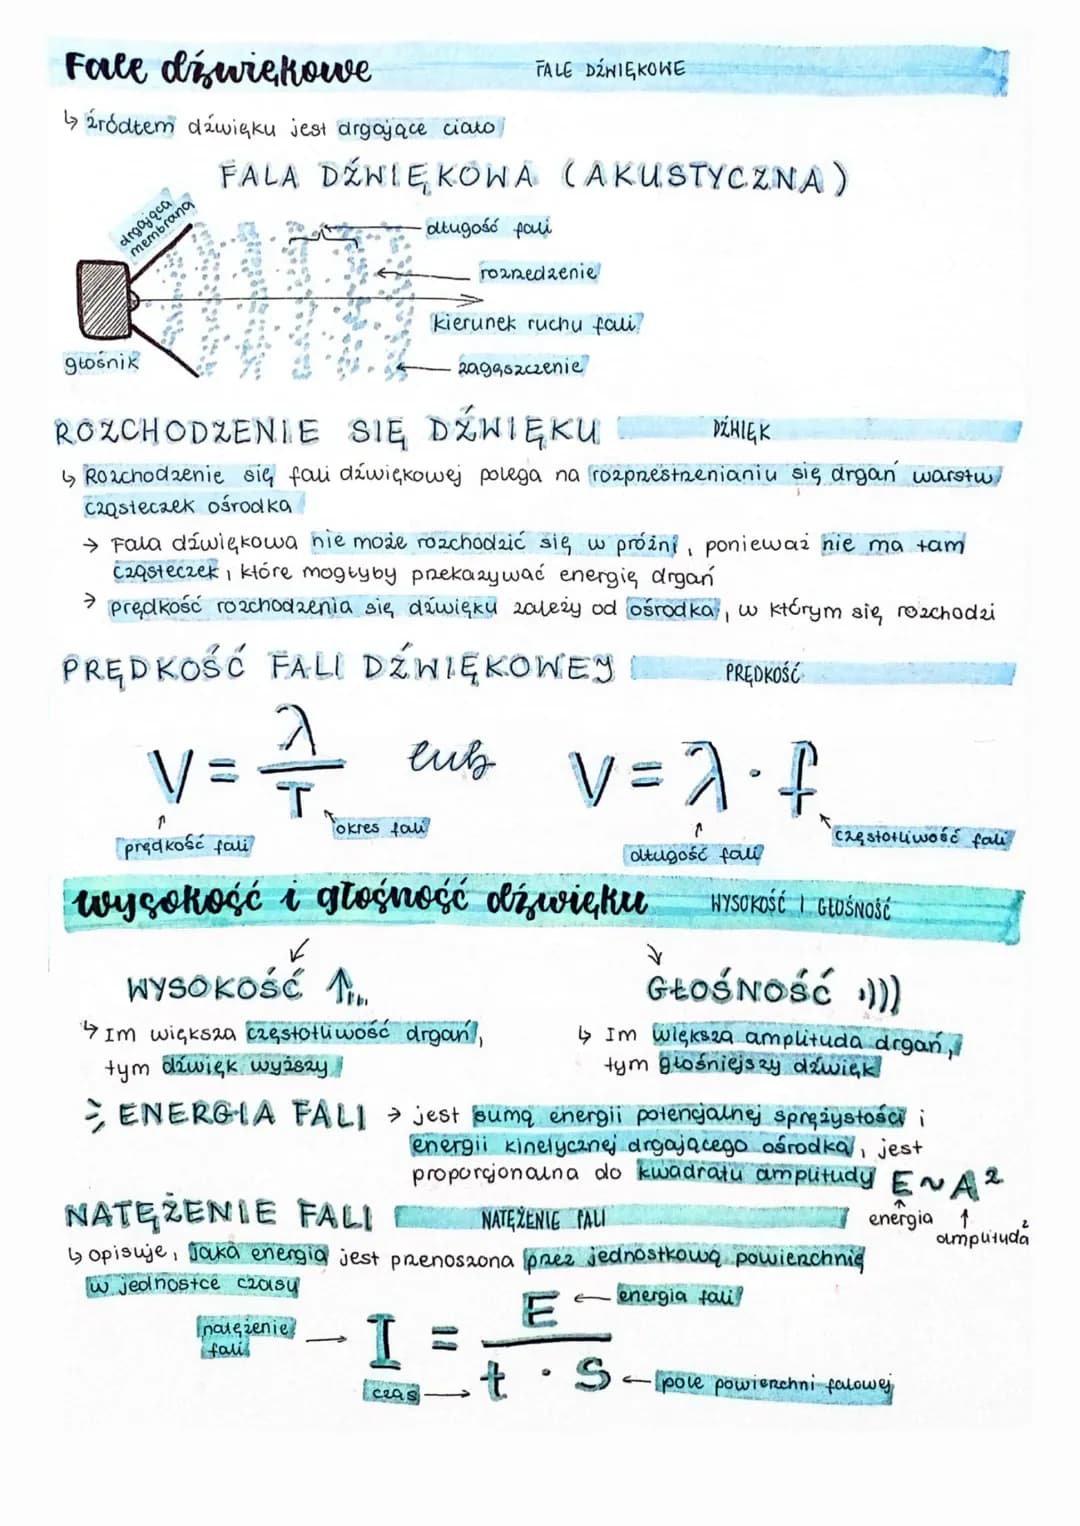 Fale dźwiękowe FALE DŹWIĘKOWE
↳ źródłem dźwięku jest drgające ciało
FALA DŹWIĘKOWA (AKUSTYCZNA)
drgająca
membrana
długość fali
rozrzedzenie
kierunek ruchu fali
głośnik
zagęszczenie
ROZCHODZENIE SIĘ DŹWIĘKU DŹWIĘK
↳ Rozchodzenie się fali dźwiękowej polega na rozprzestrzenianiu się drgań warstw
cząsteczek ośrodka
→ Fala dźwiękowa nie może rozchodzić się w próżni, ponieważ nie ma tam
cząsteczek, które mogłyby przekazywać energię drgań
→ prędkość rozchodzenia się dźwięku zależy od ośrodka, w którym się rozchodzi
PRĘDKOŚĆ FALI DŹWIĘKOWEJ PRĘDKOŚĆ
V = λ/T lub V = λ · f
prędkość fali
okres fali
długość fali
częstotliwość fali
wysokość i głośność dźwięku WYSOKOŚĆ I GŁOŚNOŚĆ
WYSOKOŚĆ
GŁOŚNOŚĆ
↳ Im większa częstotliwość drgań,
tym dźwięk wyższy
↳ Im większa amplituda drgań,
tym głośniejszy dźwięk
ENERGIA FALI → jest sumą energii potencjalnej sprężystości i
energii kinetycznej drgającego ośrodka, jest
proporcjonalna do kwadratu amplitudy E~A²
energia
amplituda²
NATĘŻENIE FALI NATĘŻENIE FALI
↳ opisuje, jaka energia jest przenoszona przez jednostkową powierzchnię
w jednostce czasu
natężenie
fali
I = E/(t · S)
energia fali
czas
pole powierzchni falowej